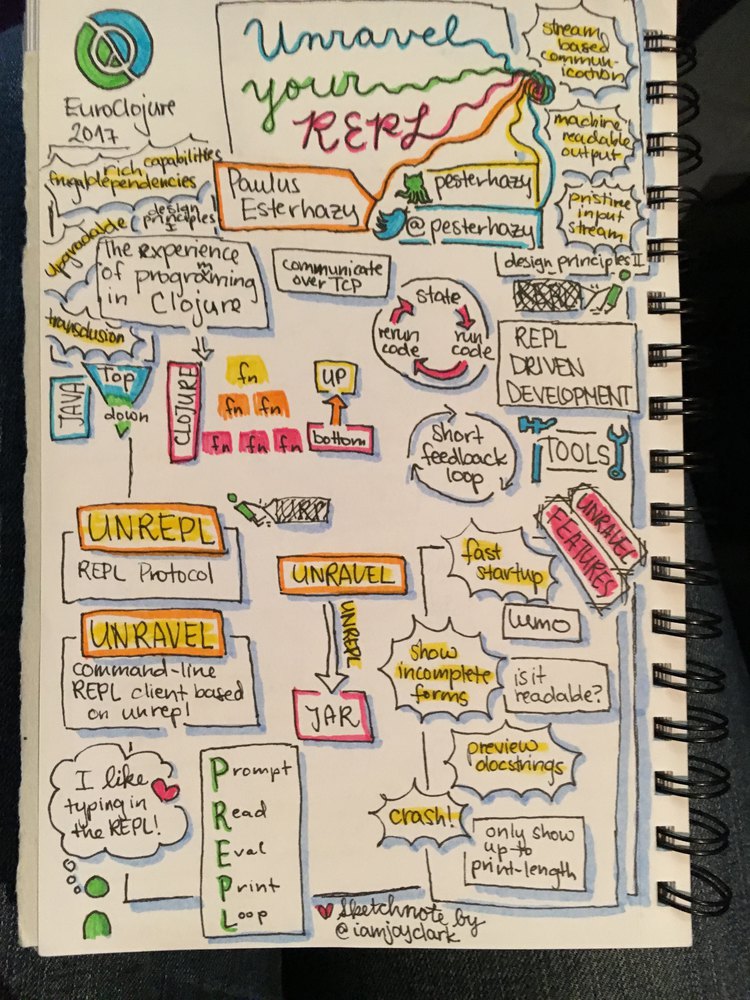 EuroClojure
2017
Unravel
your
REPL
Paulus
Esterhazy
pesterhazy
@pesterhazy
stream
based
commun-
ication
machine
readable
output
pristine
input
stream
design principles II
rich capabilities
frugal dependencies
design
principles
I
Upgradable
transclusion
The experience
of programming
in Clojure
communicate
over TCP
state
run
code
rerun
code
REPL
DRIVEN
DEVELOPMENT
JAVA
Top
down
CLOJURE
fn
fn fn
fn fn fn
UP
bottom
short
feedback
loop
TOOLS
UNREPL
REPL Protocol
UNRAVEL
command-line
REPL client based
on unrepl
UNRAVEL
UNREPL
JAR
UNRAVEL
FEATURES
fast
startup
LUMO
show
incomplete
forms
is it
readable?
preview
docstrings
crash!
only show
up-to
print-length
I like
typing in
the REPL!
Prompt
Read
Eval
Print
Loop
Sketchnote by
@iamjoyclark